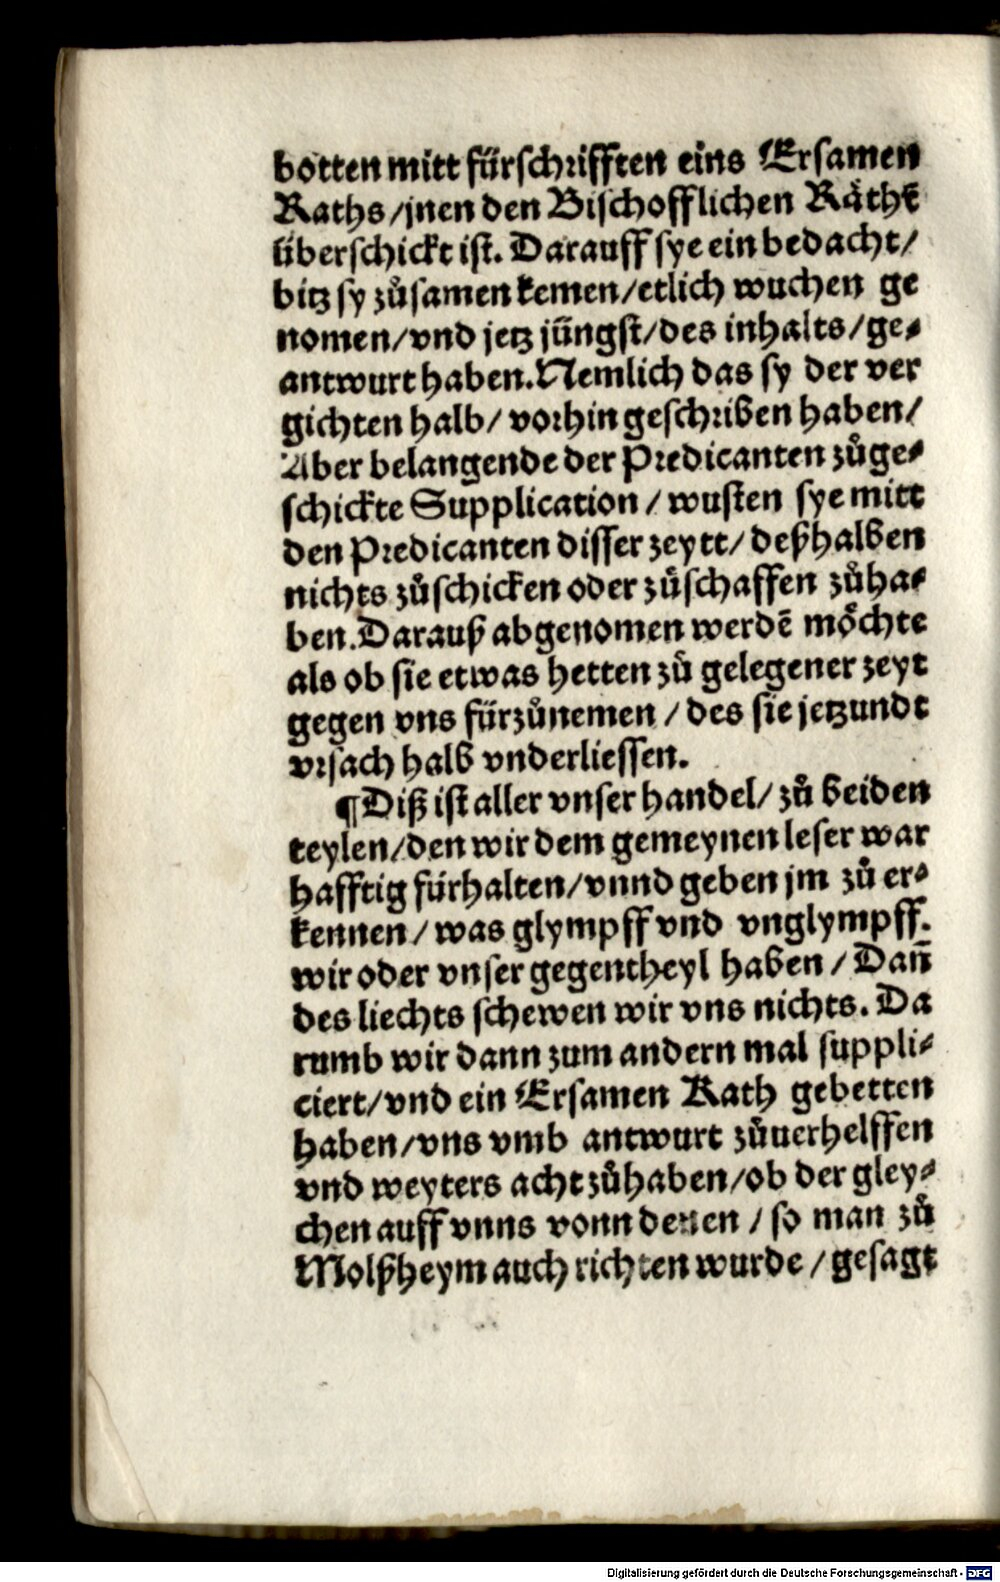 botten mitt fürschrifften eins Ersamen
Raths/jnen den Bischofflichen Räthẽ
überschickt ist. Darauff sye ein bedacht/
bitz sy zůsamen kemen/etlich wuchen ge
nomen/vnd jetz jüngst/des inhalts/ge⸗
antwurt haben. Nemlich das sy der ver
gichten halb/ vorhin geschriben haben/
Aber belangende der Predicanten zůge⸗
schickte Supplication / wusten sye mitt
den Predicanten disser zeytt/ deßhalben
nichts zůschicken oder zůschaffen zůha⸗
ben. Darauß abgenomen werdẽ möchte
als ob sie etwas hetten zů gelegener zeyt
gegen vns fürzůnemen / des sie jetzundt
vrsach halb vnderliessen.
¶Diß ist aller vnser handel/ zů beiden
teylen/den wir dem gemeynen leser war
hafftig fürhalten/vnnd geben jm zů er⸗
kennen/ was glympff vnd vnglympff.
wir oder vnser gegentheyl haben / Dañ
des liechts schewen wir vns nichts. Da
rumb wir dann zum andern mal suppli⸗
ciert/vnd ein Ersamen Rath gebetten
haben/vns vmb antwurt zůuerhelffen
vnd weyters acht zůhaben/ob der gley⸗
chen auff vnns vonn denen / so man zů
Molßheym auch richten wurde / gesagt
Digitalisierung gefördert durch die Deutsche Forschungsgemeinschaft - DFG